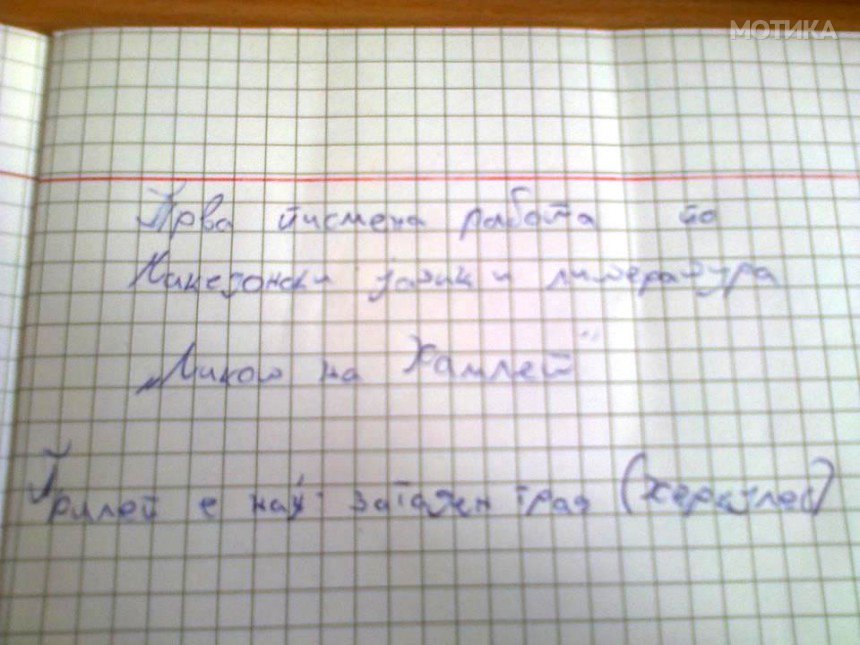 МОТИКА
Прва писмена работа по
Македонски јазик и литература
„Ликот на Хамлет"
Прилеп е нај затажен град (херкулес)